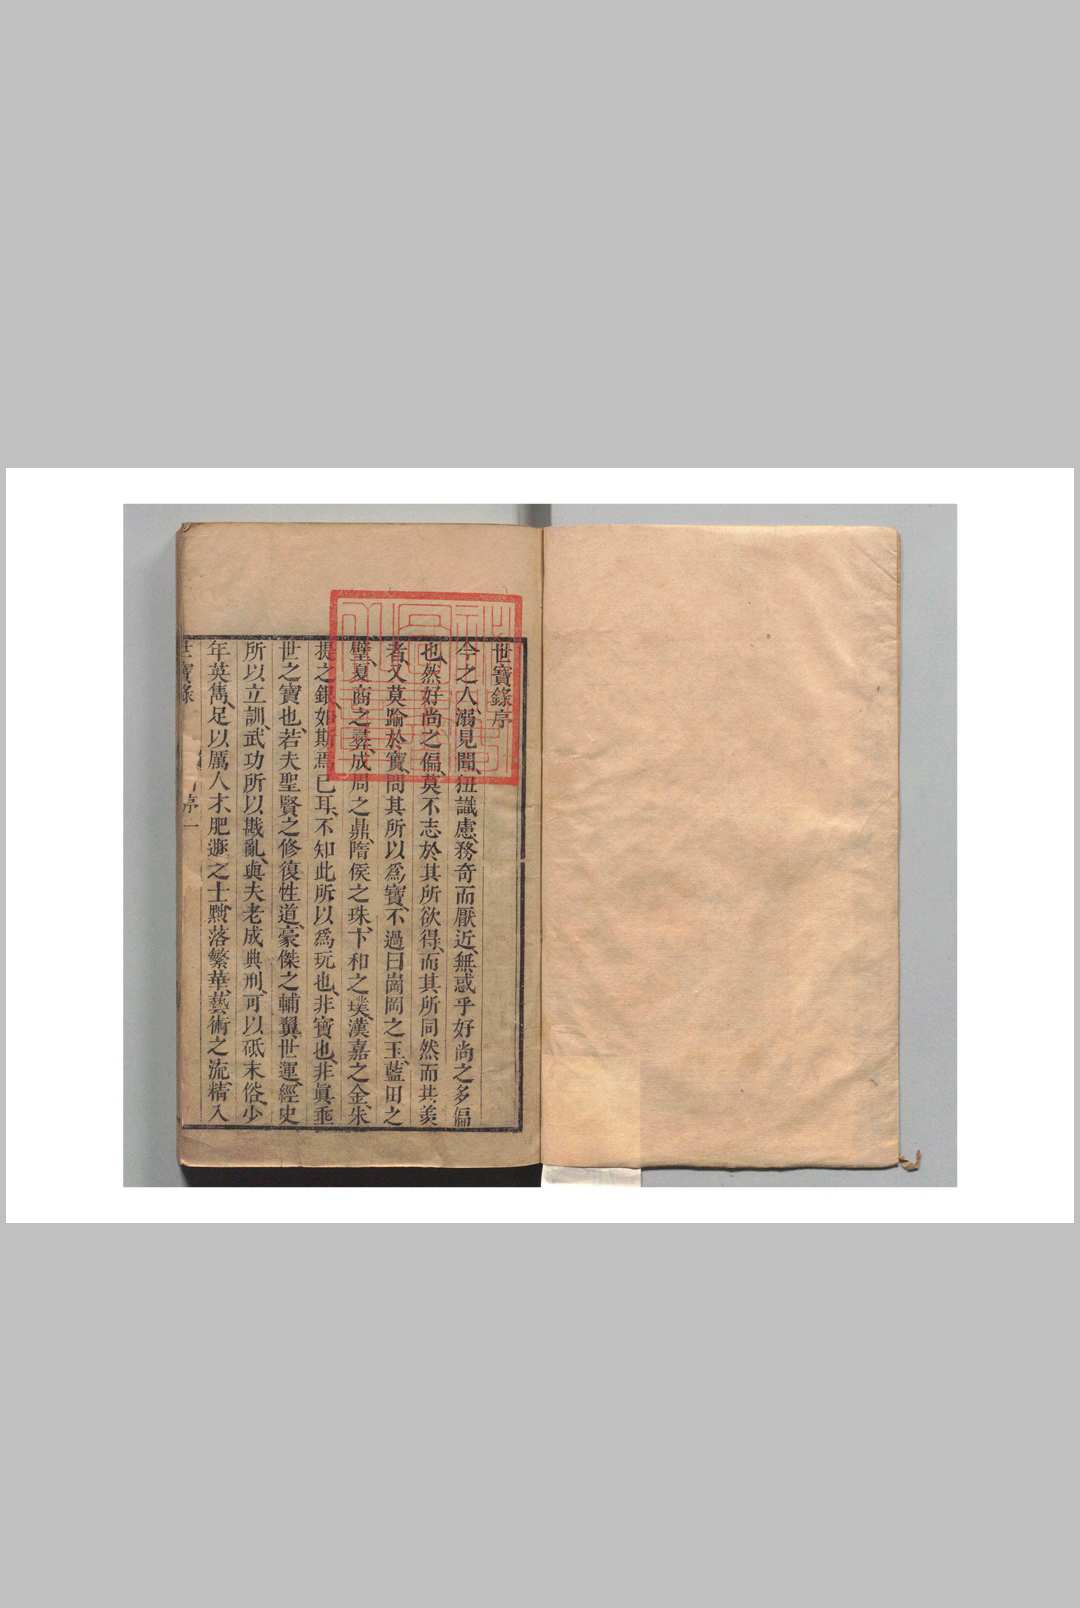 世寶錄序
今之人溺見聞、狃識慮、務奇而厭近、無惑乎好尚之多偏
也、然好尚之偏、莫不志於其所欲得、而其所同然而共羨
者、又莫踰於寶、問其所以爲寶、不過曰崗岡之玉、藍田之
璧、夏商之彝、成周之鼎、隋侯之珠、卞和之璞、漢嘉之金、朱
提之銀、如斯焉已耳、不知此所以爲玩也、非寶也、非眞垂
世之寶也、若夫聖賢之修復性道、豪傑之輔翼世運、經史
所以立訓、武功所以戡亂、與夫老成典刑、可以砥末俗、少
年英雋、足以厲人才、肥遯之士、黜落繁華、藝術之流、精入
世寶錄 序 一